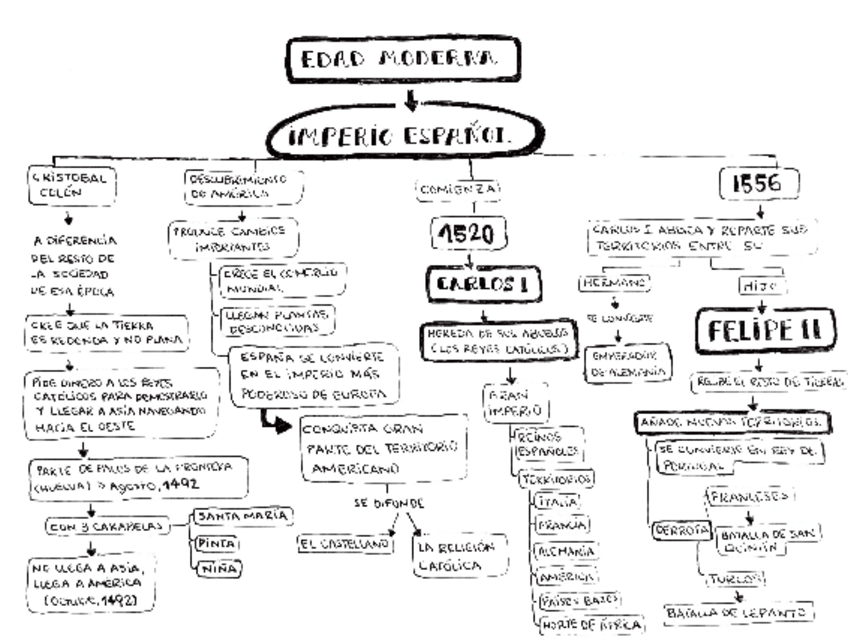 EDAD MODERNA
IMPERIO ESPAÑOL
CRISTOBAL
COLÓN
A DIFERENCIA
DEL RESTO DE
LA SOCIEDAD
DE ESA ÉPOCA
CREE QUE LA TIERRA
ES REDONDA Y NO PLANA
PIDE DINERO A LOS REYES
CATÓLICOS PARA DEMOSTRARLO
Y LLEGAR A ASIA NAVEGANDO
HACIA EL OESTE
PARTE DE PALOS DE LA FRONTERA
(HUELVA) 3 AGOSTO, 1492
CON 3 CARABELAS
SANTA MARÍA
PINTA
NIÑA
NO LLEGA A ASIA,
LLEGA A AMÉRICA
(OCTUBRE, 1492)
DESCUBRIMIENTO
DE AMÉRICA
PRODUCE CAMBIOS
IMPORTANTES
CRECE EL COMERCIO
MUNDIAL
LLEGAN PLANTAS
DESCONOCIDAS
ESPAÑA SE CONVIERTE
EN EL IMPERIO MÁS
PODEROSO DE EUROPA
CONQUISTA GRAN
PARTE DEL TERRITORIO
AMERICANO
SE DIFUNDE
EL CASTELLANO
LA RELIGIÓN
CATÓLICA
COMIENZA
1520
CARLOS I
HEREDA DE SUS ABUELOS
(LOS REYES CATÓLICOS)
GRAN
IMPERIO
REINOS
ESPAÑOLES
TERRITORIOS
ITALIA
FRANCIA
ALEMANIA
AMÉRICA
PAÍSES BAJOS
NORTE DE ÁFRICA
1556
CARLOS I ABDICA Y REPARTE SUS
TERRITORIOS ENTRE SU
HERMANO
SE CONVIERTE
EMPERADOR
DE ALEMANIA
HIJO
FELIPE II
RECIBE EL RESTO DE TIERRAS
AÑADE NUEVOS TERRITORIOS
SE CONVIERTE EN REY DE
PORTUGAL
DERROTA
FRANCESES
BATALLA DE SAN
QUINTÍN
TURCOS
BATALLA DE LEPANTO